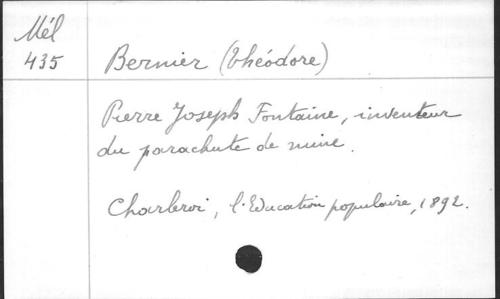 Mél
435
Bernier (Théodore)
Pierre Joseph Fontaine, inventeur
du parachute de mine.
Charleroi, l'Education populaire, 1892.